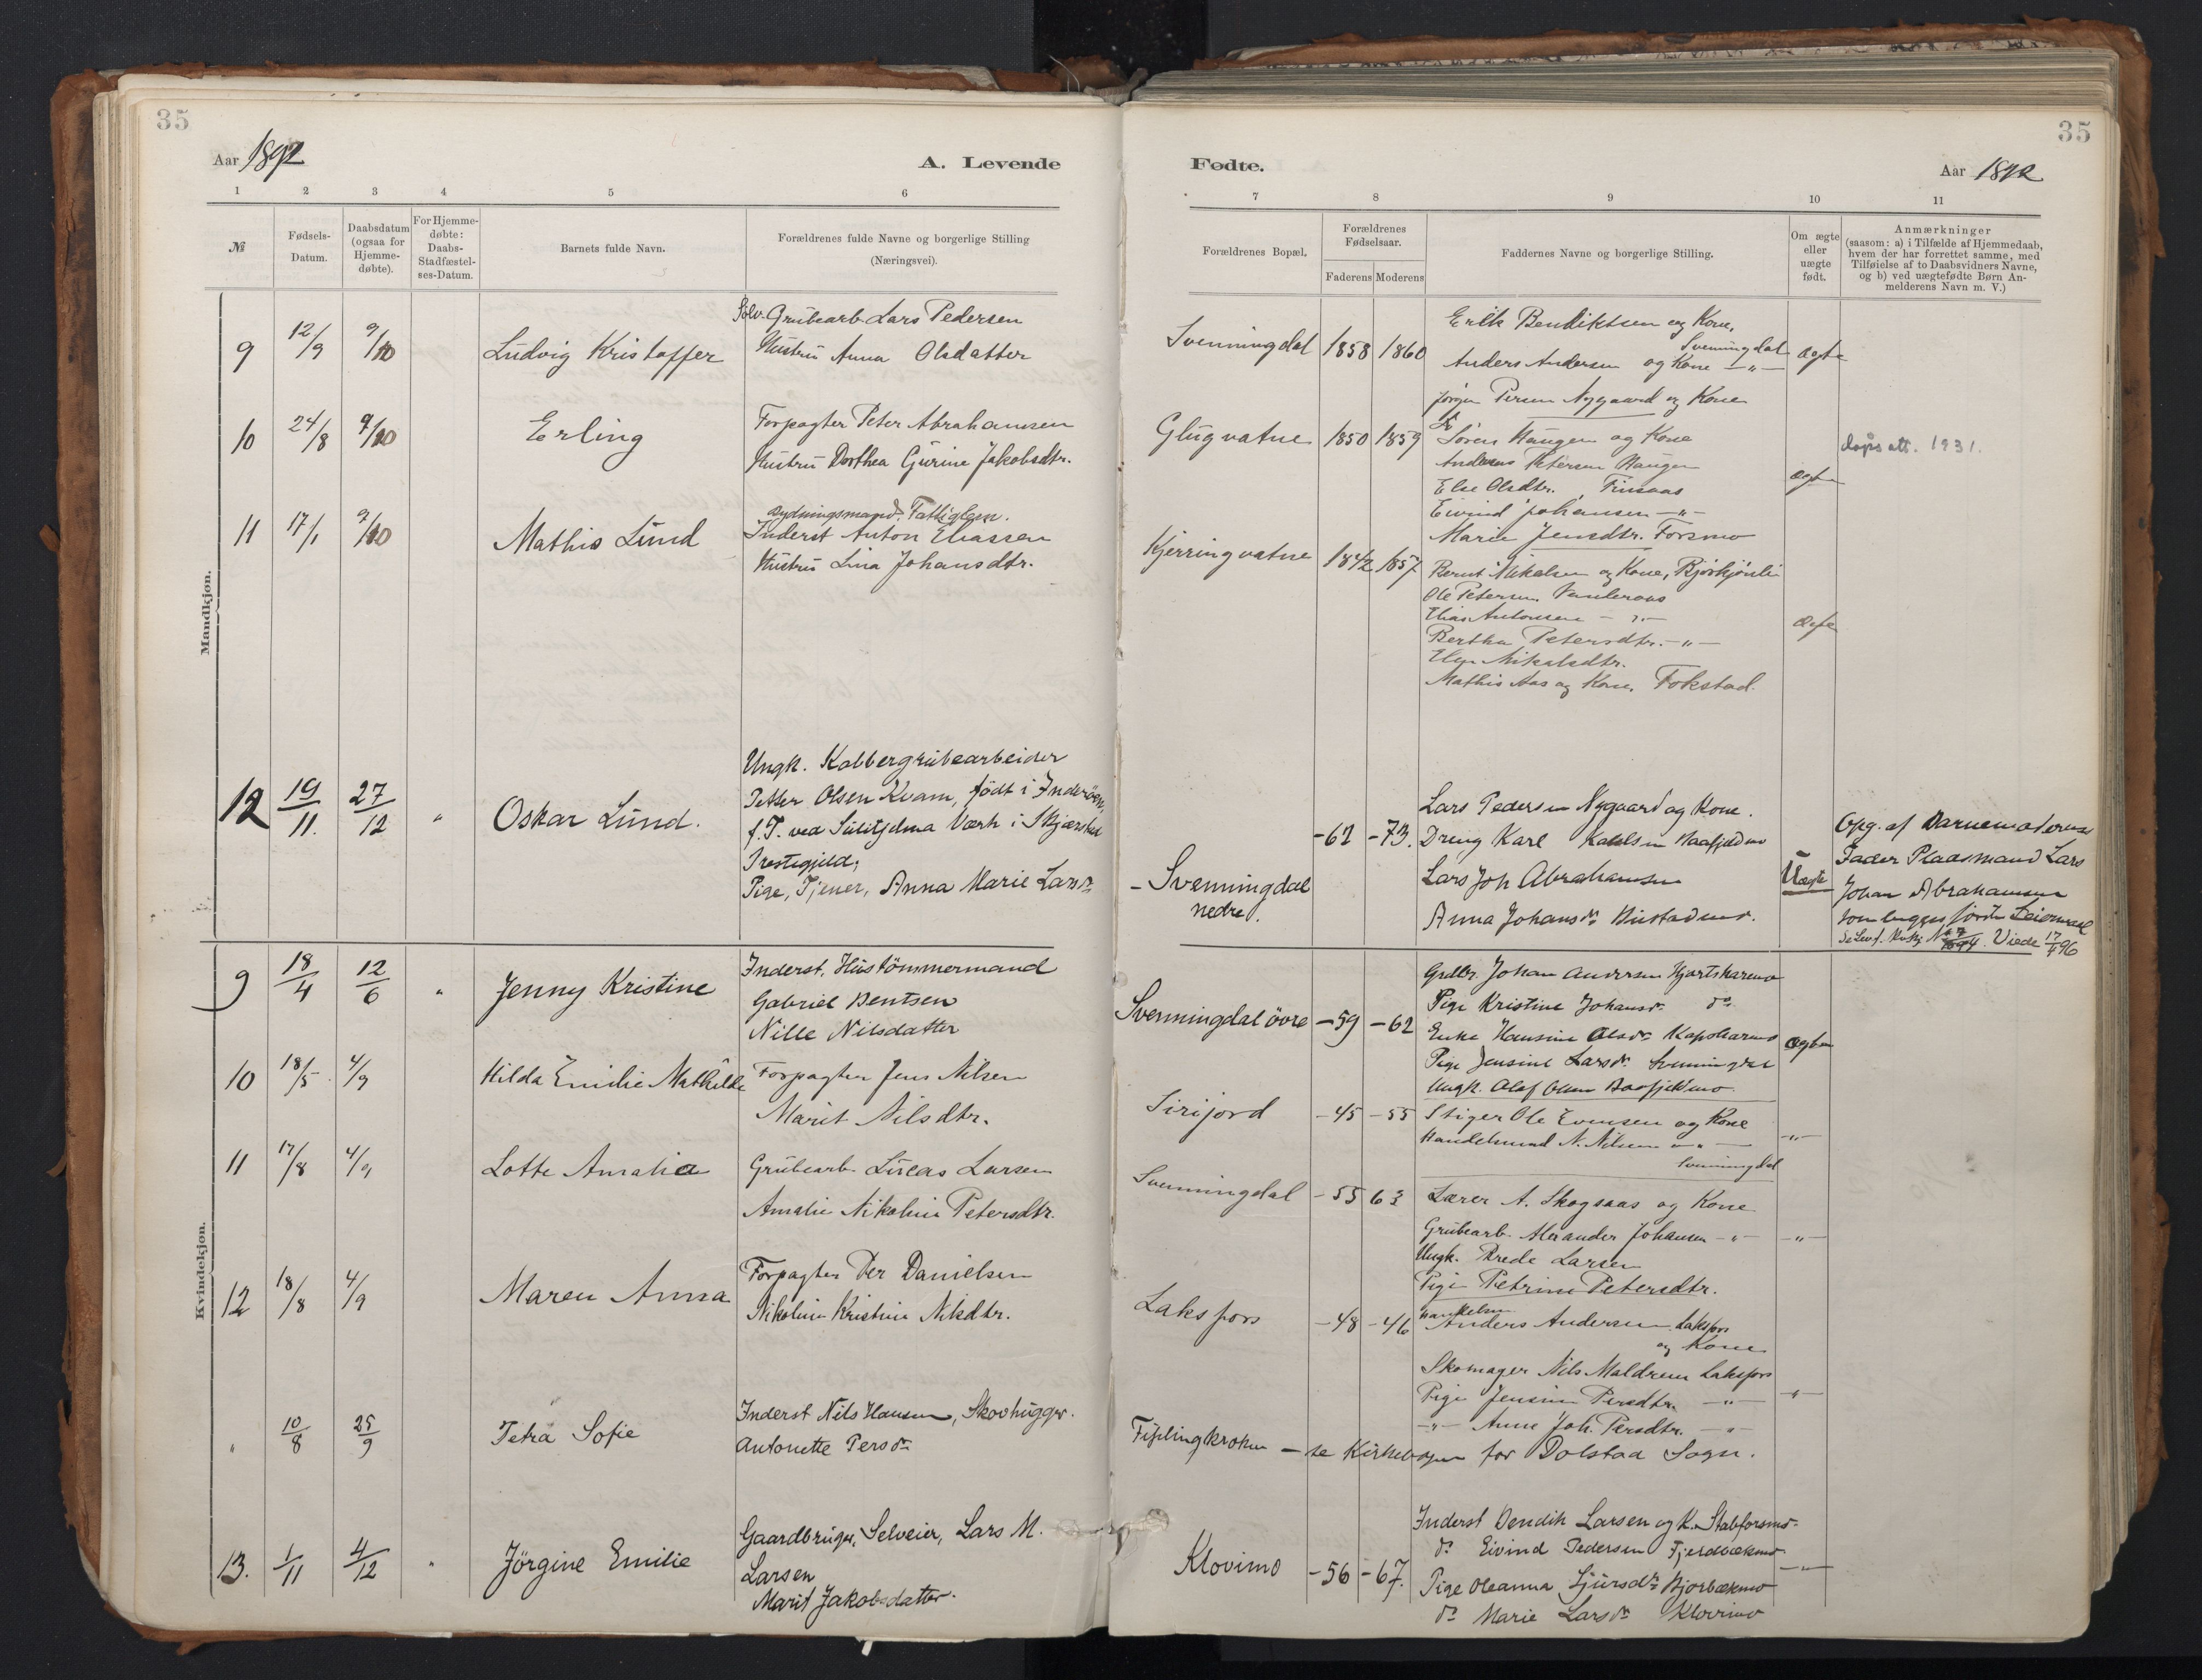 35
Aar 1892
A. Levende
1 2 3 4 5 6
№
Fødsels-
Datum.
Daabsdatum
(ogsaa for
Hjemme-
døbte).
For Hjemme-
døbte:
Daabs-
Stadfæstel-
ses-Datum.
Barnets fulde Navn.
Forældrenes fulde Navne og borgerlige Stilling
(Næringsvei).
Mandkjøn.
9 12/9 9/10 Ludvig Kristoffer
Sølv-Grubearb. Lars Pedersen
Hustru Anna Olsdatter
10 24/8 9/10 Erling
Forpagter Peter Abrahamsen
Hustru Dorthea Gurine Jakobsdtr.
11 17/1 9/10 Mathis Lund
Rydningsmand, Fattiglem.
Inderst Anton Eliassen
Hustru Lina Johansdtr.
12 19/11. 27/12 " Oskar Lund.
Ungk. Kobbergrubearbeider
Petter Olsen Kvam, født i Inderøen,
f. T. ved Sulitjelma Værk i Skjærstad
Prestegjeld,
Pige, Tjener, Anna Marie Larsdr
Kvindekjøn.
9 18/4 12/6 " Jenny Kristine
Inderst, Hustømmermand
Gabriel Bentsen
Nille Nilsdatter
10 18/5 4/9 Hilda Emilie Mathilde
Forpagter Jens Nilsen
Marit Nilsdtr.
11 17/8 4/9 Lotte Amalia
Grubearb. Lucas Larsen
Amalie Nikoline Petersdtr.
12 18/8 4/9 Maren Anna
Forpagter Per Danielsen
Nikoline Kristine Nilsdtr.
" 10/8 25/9 Petra Sofie
Inderst Nils Hansen, Skovhugger.
Antonette Persdr
13. 1/11 4/12 " Jørgine Emilie
Gaardbruger, Selveier, Lars M.
Larsen
Marit Jakobsdatter.
35
Fødte.
Aar 1892
7 8 9 10 11
Forældrenes Bopæl.
Forældrenes
Fødselsaar.
Faderens Moderens
Faddernes Navne og borgerlige Stilling.
Om ægte
eller
uægte
født.
Anmærkninger
(saasom: a) i Tilfælde af Hjemmedaab,
hvem der har forrettet samme, med
Tilføielse af to Daabsvidners Navne,
og b) ved uægtefødte Børn An-
melderens Navn m. V.)
Svenningdal 1858 1860
Erik Bendiktsen og Kone,
Svenningdal
Anders Andersen og Kone —"—
ægte
Jørgen Persen Nygaard og Kone
Glugvatne 1850 1859
Søren Haugen og Kone
Andreas Petersen Haugen
Else Olsdtr., Finsaas
Eivind Johansen —"—
Marie Jensdtr. Forsmo
ægte
daps att. 1931.
Kjerringvatne 1842 1857
Bernt Mikalsen og Kone, Bjørkjønli
Ole Petersen
Elias Antonsen —"—
Bertha Petersdtr. —"—
Mikalsdtr.
Mathis Aas og Kone, Fokstad.
ægte
Svenningdal
nedre.
-62 -73.
Lars Pedersen Nygaard og Kone.
Dreng Karl
Lars Joh Abrahamsen
Anna Johansdr
Uægte
Opg. af Barnemoderens
Fader Plaasmand Lars
Johan Abrahamsen
Viede 17/ 96
Svenningdal øvre -59 -62
Grdbr. Johan Andersen Hjortskarmo
Pige Kristine Johansdr do
Enke Hansine Olsdr Kapskarmo
Pige Jensine Larsdr Svenningdal
Ungk. Olaf Olsen Baafjeldmo.
ægte
Sirijord -45 -55
Stiger Ole Evensen og Kone
Handelsmand N. Nilsen —"—
Svenningdal
—"—
Svenningdal -55 63
Lærer A. Skogsaas og Kone
Grubearb. Alexander Johansen —"—
Ungk. Larsen
Pige Petrine Petersdtr.
—"—
Laksfors -48 -46
Anders Andersen Laksfors
og Kone
Skomager Nils Maldrem Laksfors
Pige Jensine Persdtr. —"—
—"— Anne Joh. Persdtr. —"—
—"—
Fiplingkroken — se Kirkebogen for Dolstad Sogn.
Klovimo -56 -67.
Inderst Bendik Larsen og K. Stabforsmo.
do Eivind Pedersen Fjerdbækmo
Pige Oleanna Sjursdr Bjorbækmo
do Marie Larsdr Klovimo
—"—